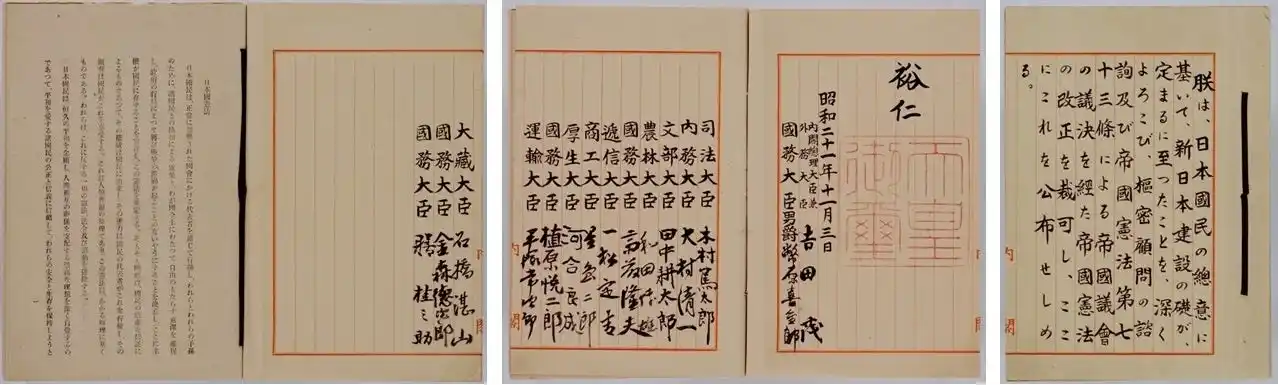 朕は、日本國民の總意に
基いて、新日本建設の礎が、
定まるに至つたことを、深く
よろこび、樞密顧問の諮
詢及び帝國憲法第七
十三條による帝國議會
の議決を経た帝國憲法
の改正を裁可し、ここ
にこれを公布せしめ
る。
内閣
裕仁
天皇御璽
昭和二十一年十一月三日
内閣總理大臣兼
外務大臣 吉田茂
國務大臣男爵幣原喜重郎
内閣
司法大臣 木村篤太郎
内務大臣 大村清一
文部大臣 田中耕太郎
農林大臣 和田博雄
國務大臣 斎藤隆夫
遞信大臣 一松定吉
商工大臣 星島二郎
厚生大臣 河合良成
國務大臣 植原悦二郎
運輸大臣 平塚常次郎
内閣
大藏大臣 石橋湛山
國務大臣 金森德次郎
國務大臣 膳桂之助
内閣
日本國憲法
日本國民は、正當に選擧された國會における代表者を通じて行動し、われらとわれらの子孫
のために、諸國民との協和による成果と、わが國全土にわたつて自由のもたらす惠澤を確保
し、政府の行爲によつて再び戰爭の慘禍が起ることのないやうにすることを決意し、ここに主
權が國民に存することを宣言し、この憲法を確定する。そもそも國政は、國民の嚴肅な信託に
よるものであつて、その權威は國民に由來し、その權力は國民の代表者がこれを行使し、その
福利は國民がこれを享受する。これは人類普遍の原理であり、この憲法は、かかる原理に基く
ものである。われらは、これに反する一切の憲法、法令及び詔勅を排除する。
日本國民は、恒久の平和を念願し、人間相互の關係を支配する崇高な理想を深く自覺するの
であつて、平和を愛する諸國民の公正と信義に信賴して、われらの安全と生存を保持しようと
一